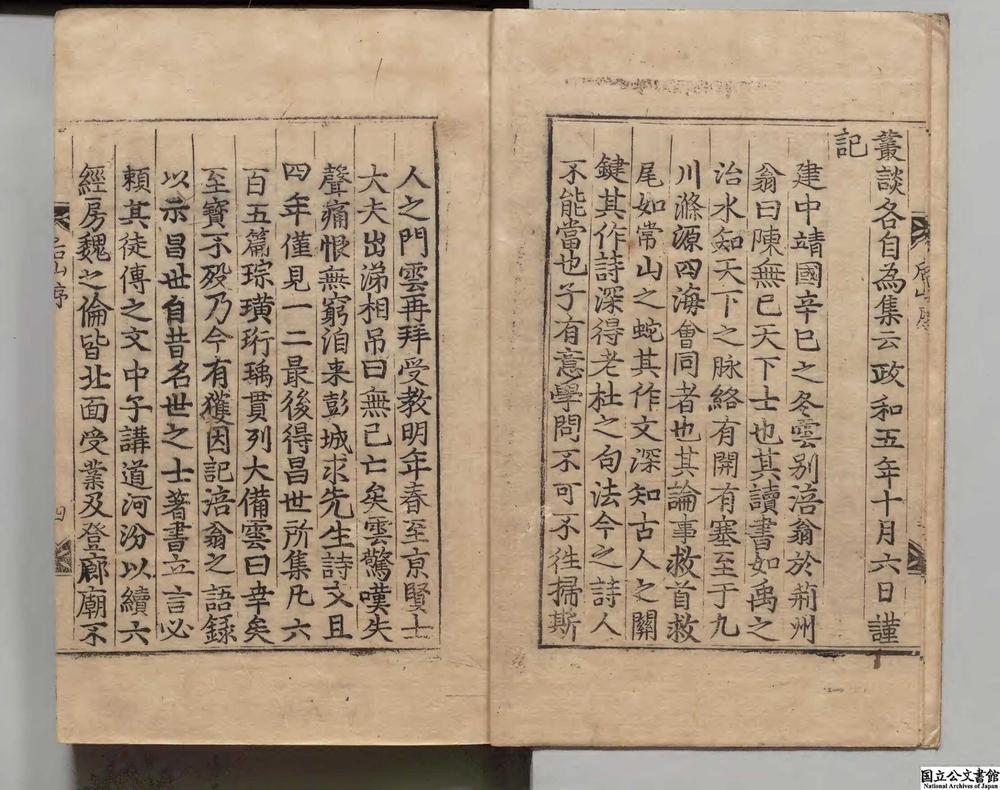 叢談各自為集云政和五年十月六日謹
記
建中靖國辛巳之冬雲別涪翁於荊州
翁曰陳無已天下士也其讀書如禹之
治水知天下之脉絡有開有塞至于九
川滌源四海會同者也其論事救首救
尾如常山之蛇其作文深知古人之關
鍵其作詩深得老杜之句法今之詩人
不能當也子有意學問不可不往掃斯
人之門雲再拜受教明年春至京賢士
大夫出涕相吊曰無己亡矣雲驚嘆失
聲痛恨無窮洎来彭城求先生詩文且
四年僅見一二最後得昌世所集凡六
百五篇琮璜珩瑀貫列大備雲曰幸矣
至寶不歿乃今有獲因記涪翁之語録
以示昌世自昔名世之士著書立言必
頼其徒傳之文中子講道河汾以續六
經房魏之倫皆北面受業及登廊廟不
后山序
四
国立公文書館
National Archives of Japan